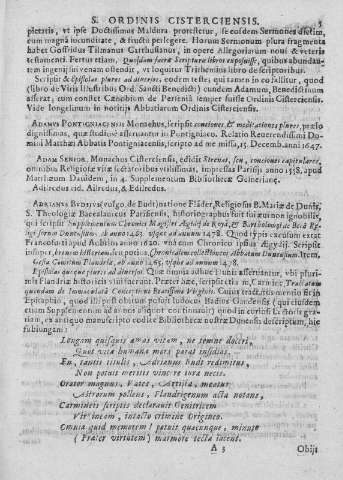 S. ORDINIS CISTERCIENSIS. 5
pletatis, vt ipse Doctissimus Maldura protestetur, se eosdem Sermones
cum magna iucunditate, & fructu perlegere. Horum Sermonum plura fragmenta
habet Gosfridus Tilmanus Carthusianus, in opere Allegoriarum noui & veteris
testamenti. Fertur etiam, Quasdam sacræ Scripturæ libros exposuisse, quibus abundan-
tem ingenij sui venam ostendit, vt loquitur Trithemius libro de scriptoribus.
Scripsit & Epistolas plures ad diuersos, eodem teste; qui tamen in eo fallitur, quod
(libro de Viris Illustribus Ord. Sancti Benedicti) eundem Adamum, Benedictinum
asserat; cum constet Cænobium de Persenia semper fuisse Ordinis Cisterciensis.
Vide Iongelinum in notitia Abbatiarum Ordinis Cisterciensis.
ADAMVS PONTIGNIACENSIS Monachus, scripsit conciones & meditationes plures, prælo
dignissimas, quæ studiosè asseruantur in Pontigniaco. Relatio Reuerendissimi Do-
mini Matthæi Abbatis Pontigniacensis, scripto ad me missa, 15. Decemb. anni 1647.
ADAM SENIOR, Monachus Cisterciensis, edidit Sirenas, seu, conciones capitulares,
omnibus Religiosæ vitæ sectatoribus vtilissimas, impressas Parisijs anno 1558. apud
Matthæum Dauidem, in 4. Supplementum Bibliothecæ Gesnerianæ.
Adiredus vid. Ailredus, & Ediredus.
ADRIANVS BVDSIVS (vulgo, de Budt) natione Flander, Religiosus B. Mariæ de Dunis,
S. Theologiæ Baccalaureus Parisiensis, historiographus fuit sui æui non ignobilis,
qui scripsit Supplementum Chronici Magistri Ægidij de Roya, & Bartholomæi de Beka
ab anno 1431. vsque ad annum 1478. Quod typis excusum extat
Francofurti apud anno 1620. vnà cum Chronico ipsius Ægydij. Scripsit
insuper, Chronicalem collectionem Abbatum Dunensium. Item,
Gesta Comitum Flandriæ, ab anno 1465. vsque ad annum 1478.
Epistolas quoque plures ad diuersos. Quæ omnia adhuc Dunis asseruantur, vbi pluri-
mis Flandriæ historicis vsui fuerunt. Præter hæc, scripsit etiam, Carmine, Tractatum
quendam de Immaculata Conceptione Beatissimæ Virginis. Cuius tractatus mentio fit in
Epitaphio, quod illi post obitum posuit Iodocus Badius Gandensis (qui eiusdem
etiam Supplementum ad nos continuauit) quod in curiosi Lectoris gra-
tiam, ex antiquo manuscripto codice Bibliothecæ nostræ Dunensis descriptum, hic
subiungam:
Longam quisquis amas vitam, ne semne doceri,
Quot vita humana mors parat insidias.
En, tantis titulis, Adrianus Budt redimitus,
Non potuit meritis vincere iura necis.
Orator magnus, Vates, Artista, meatus
Astrorum pollens, Flandrigenum acta notans,
Carmineis scriptis declarauit Genitricem
Virgineam, intacto crimine Originis.
Omnia quid memorem? potuit quæcunque, minuto
(Præter virtutem) marmore tecta iacent.
A 3 Obijt